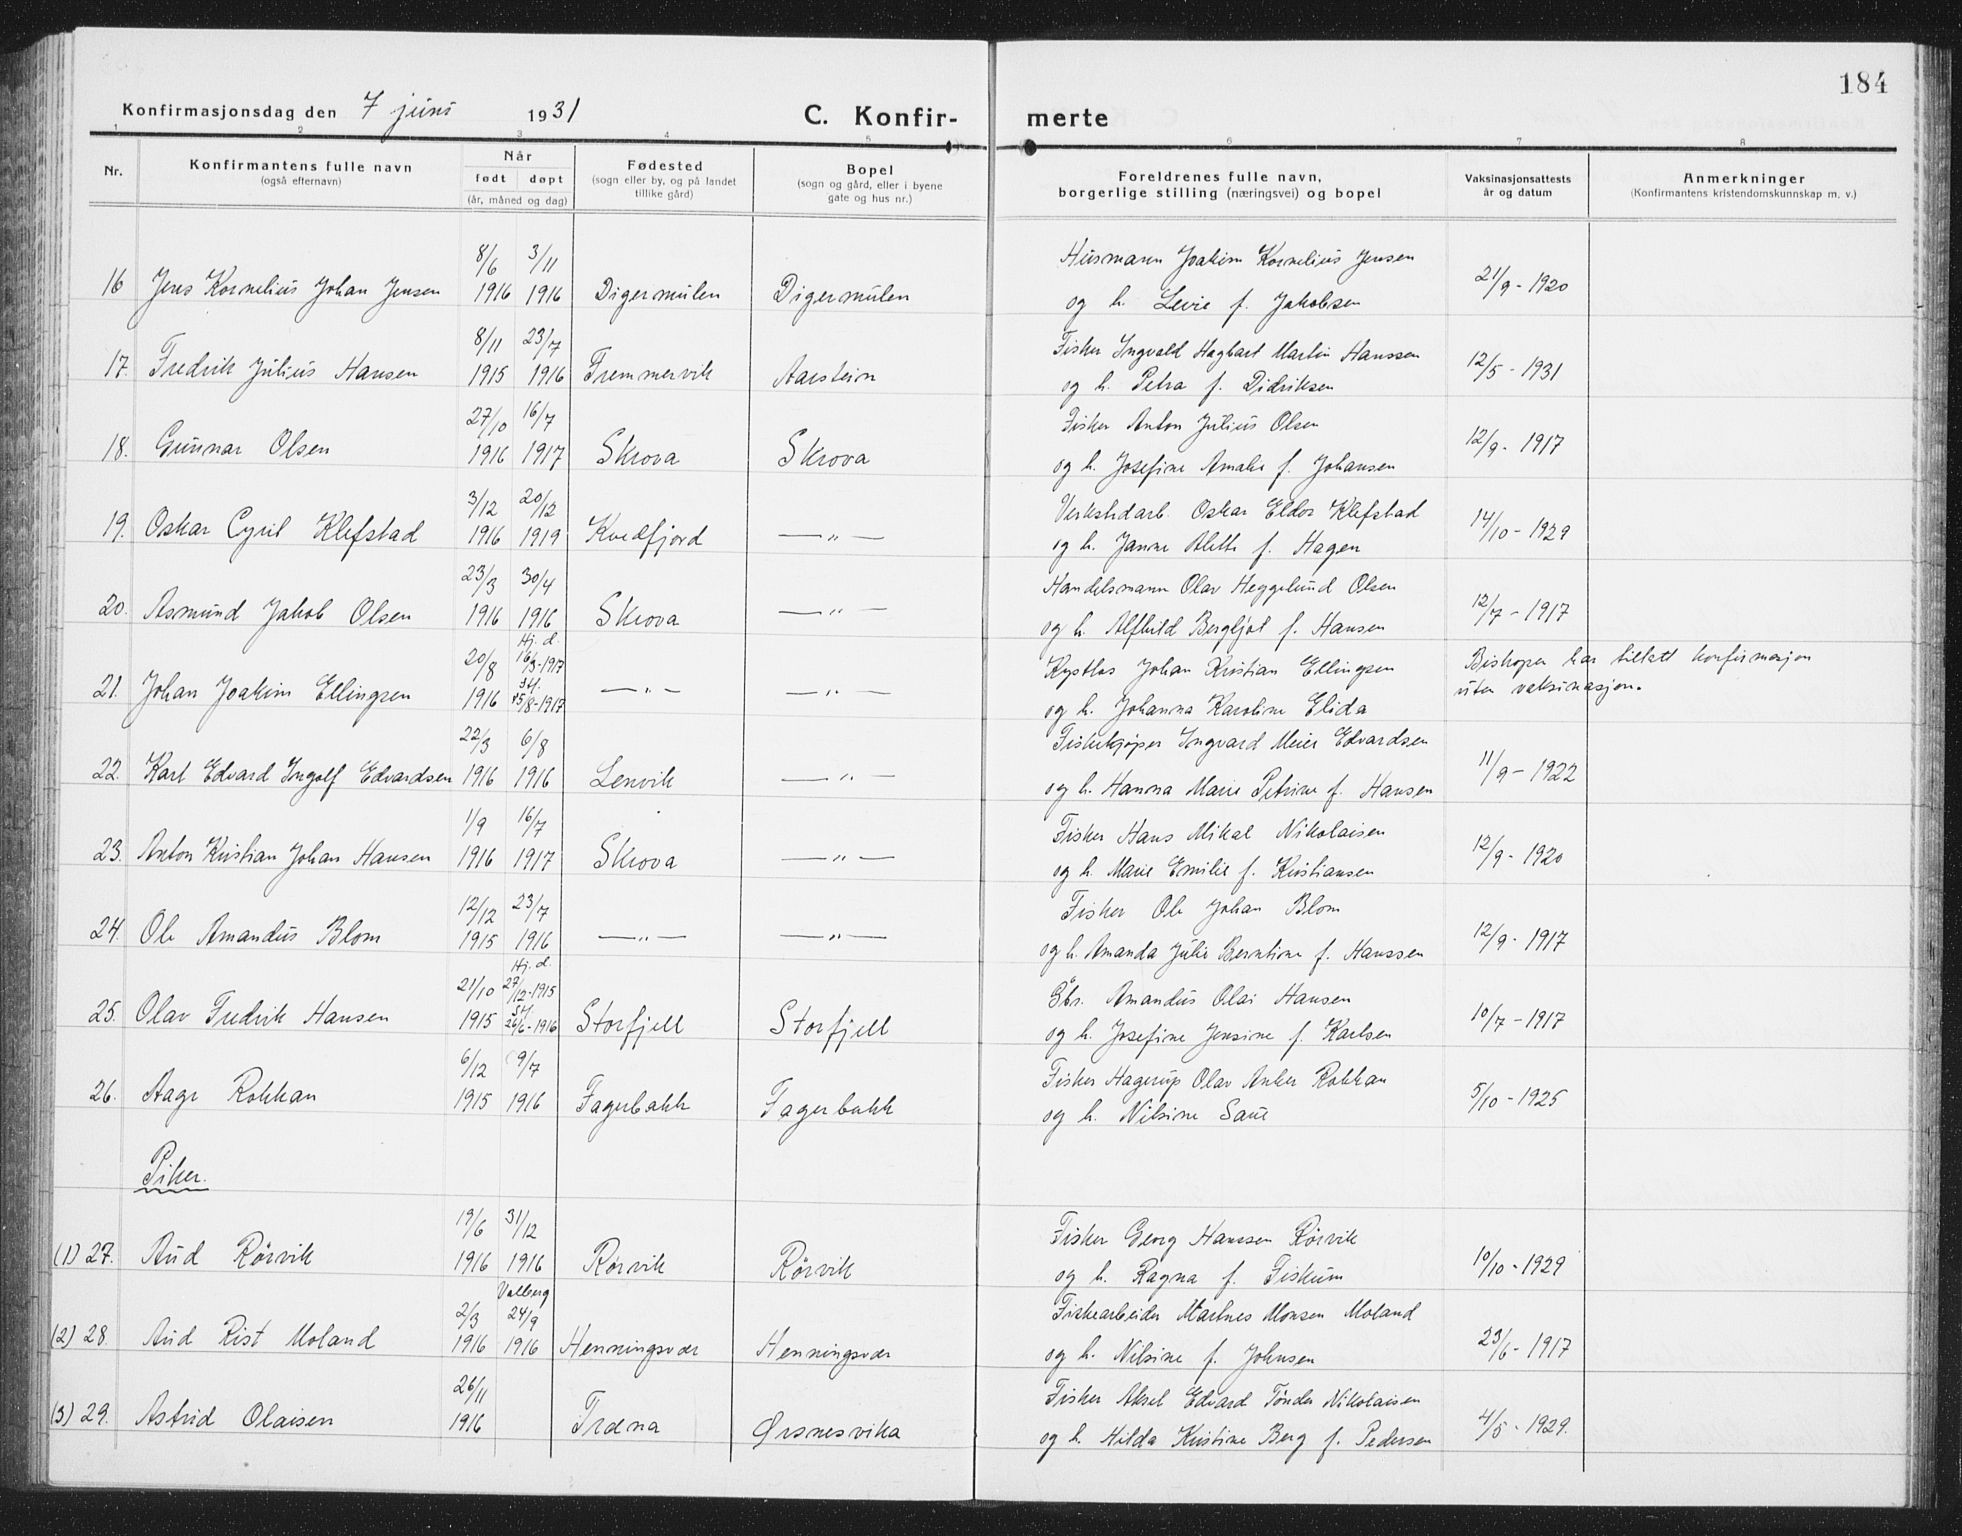 184
Konfirmasjonsdag den 7 juni 1931 C. Konfir- merte
1 2 3 4 5 6 7 8
Nr. Konfirmantens fulle navn (også efternavn) Når født døpt (år, måned og dag) Fødested (sogn eller by, og på landet tillike gård) Bopel (sogn og gård, eller i byene gate og hus nr.) Foreldrenes fulle navn, borgerlige stilling (næringsvei) og bopel Vaksinasjonsattests år og datum Anmerkninger (Konfirmantens kristendomskunnskap m. v.)
8/6 3/11 Husmann Joakim Kornelius Jensen
16 Jens Kornelius Johan Jensen 1916 1916 Digermulen Digermulen og h. Levie f. Jakobsen 21/9 - 1920
8/11 23/7 Fisker Ingvald Hagbart Martin Hanssen
17. Fredrik Julius Hansen 1915 1916 Fremmervik Aarstein og h. Petra f. Didriksen 12/5 - 1931
27/10 16/7 Fisker Anton Julius Olsen
18. Gunnar Olsen 1916 1917 Skrova Skrova og h. Josefine Amalie f. Johansen 12/9 - 1917
3/12 20/12 Verkstedarb. Oskar Eldor Klefstad
19. Oskar Cyril Klefstad 1916 1919 Kvedfjord — " — og h. Janne Aleth f. Hagen 14/10 - 1929
23/3 30/4 Handelsmann Olav Heggelund Olsen
20. Asmund Jakob Olsen 1916 1916 Skrova — " — og h. Alfhild Bergljot f. Hansen 12/7 - 1917
20/8 Hj. d. 16/3-1917 Kystlos Johan Kristian Ellingsen Bispen har tillatt konfirmasjon
21. Johan Joakim Ellingsen 1916 Stf. 15/8-1917 — " — — " — og h. Johanna Karoline Elida uten vaksinasjon.
22/3 6/8 Fiskekjøper Ingvard Meier Edvardsen
22. Karl Edvard Ingolf Edvardsen 1916 1916 Lenvik — " — og h. Hanna Marie Petrine f. Hansen 11/9 - 1922
1/9 16/7 Fisker Hans Mikal Nikolaisen
23. Anton Kristian Johan Hansen 1916 1917 Skrova — " — og h. Marie Emilie f. Kristiansen 12/9 - 1920
12/12 23/7 Fisker Ole Johan Blom
24. Ole Amandus Blom 1915 1916 — " — — " — og h. Amanda Julie Berntine f. Hanssen 12/9 - 1917
21/10 Hj. d. 27/12-1915 Gbr. Amandus Olai Hansen
25. Olav Fredrik Hansen 1915 Stf. 26/6-1916 Storfjell Storfjell og h. Josefine Jensine f. Karlsen 10/7 - 1917
6/12 9/7 Fisker Hagerup Olav Anker Rokkan
26. Aage Rokkan 1915 1916 Fagerbakk Fagerbakk og h. Nilsine Saue 5/10 - 1925
Piker.
19/6 31/12 Fisker Georg Hanssen Rörvik
(1) 27. Aud Rörvik 1916 1916 Rörvik Rörvik og h. Ragna f. Fiskum 10/10 - 1929
2/3 Valberg 24/9 Fiskearbeider Martnes Monsen Moland
(2) 28. Aud Rist Moland 1916 1916 Henningsvær Henningsvær og h. Nilsine f. Johnsen 23/6 - 1917
26/11 Fisker Aksel Edvard Tönder Nikolaisen
(3) 29. Astrid Olaisen 1916 Træna Ørsnesvika og h. Hilda Kristine Berg f. Pedersen 4/5 - 1929.